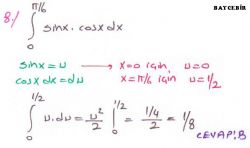 BAYCEBİR
8-) ∫₀^(π/6) sinx . cosx dx
sinx = u → x=0 için u=0
cosx dx = du x=π/6 için u=1/2
∫₀^(1/2) u.du = u²/2 |₀^(1/2) = (1/4)/2 = 1/8
CEVAP:B